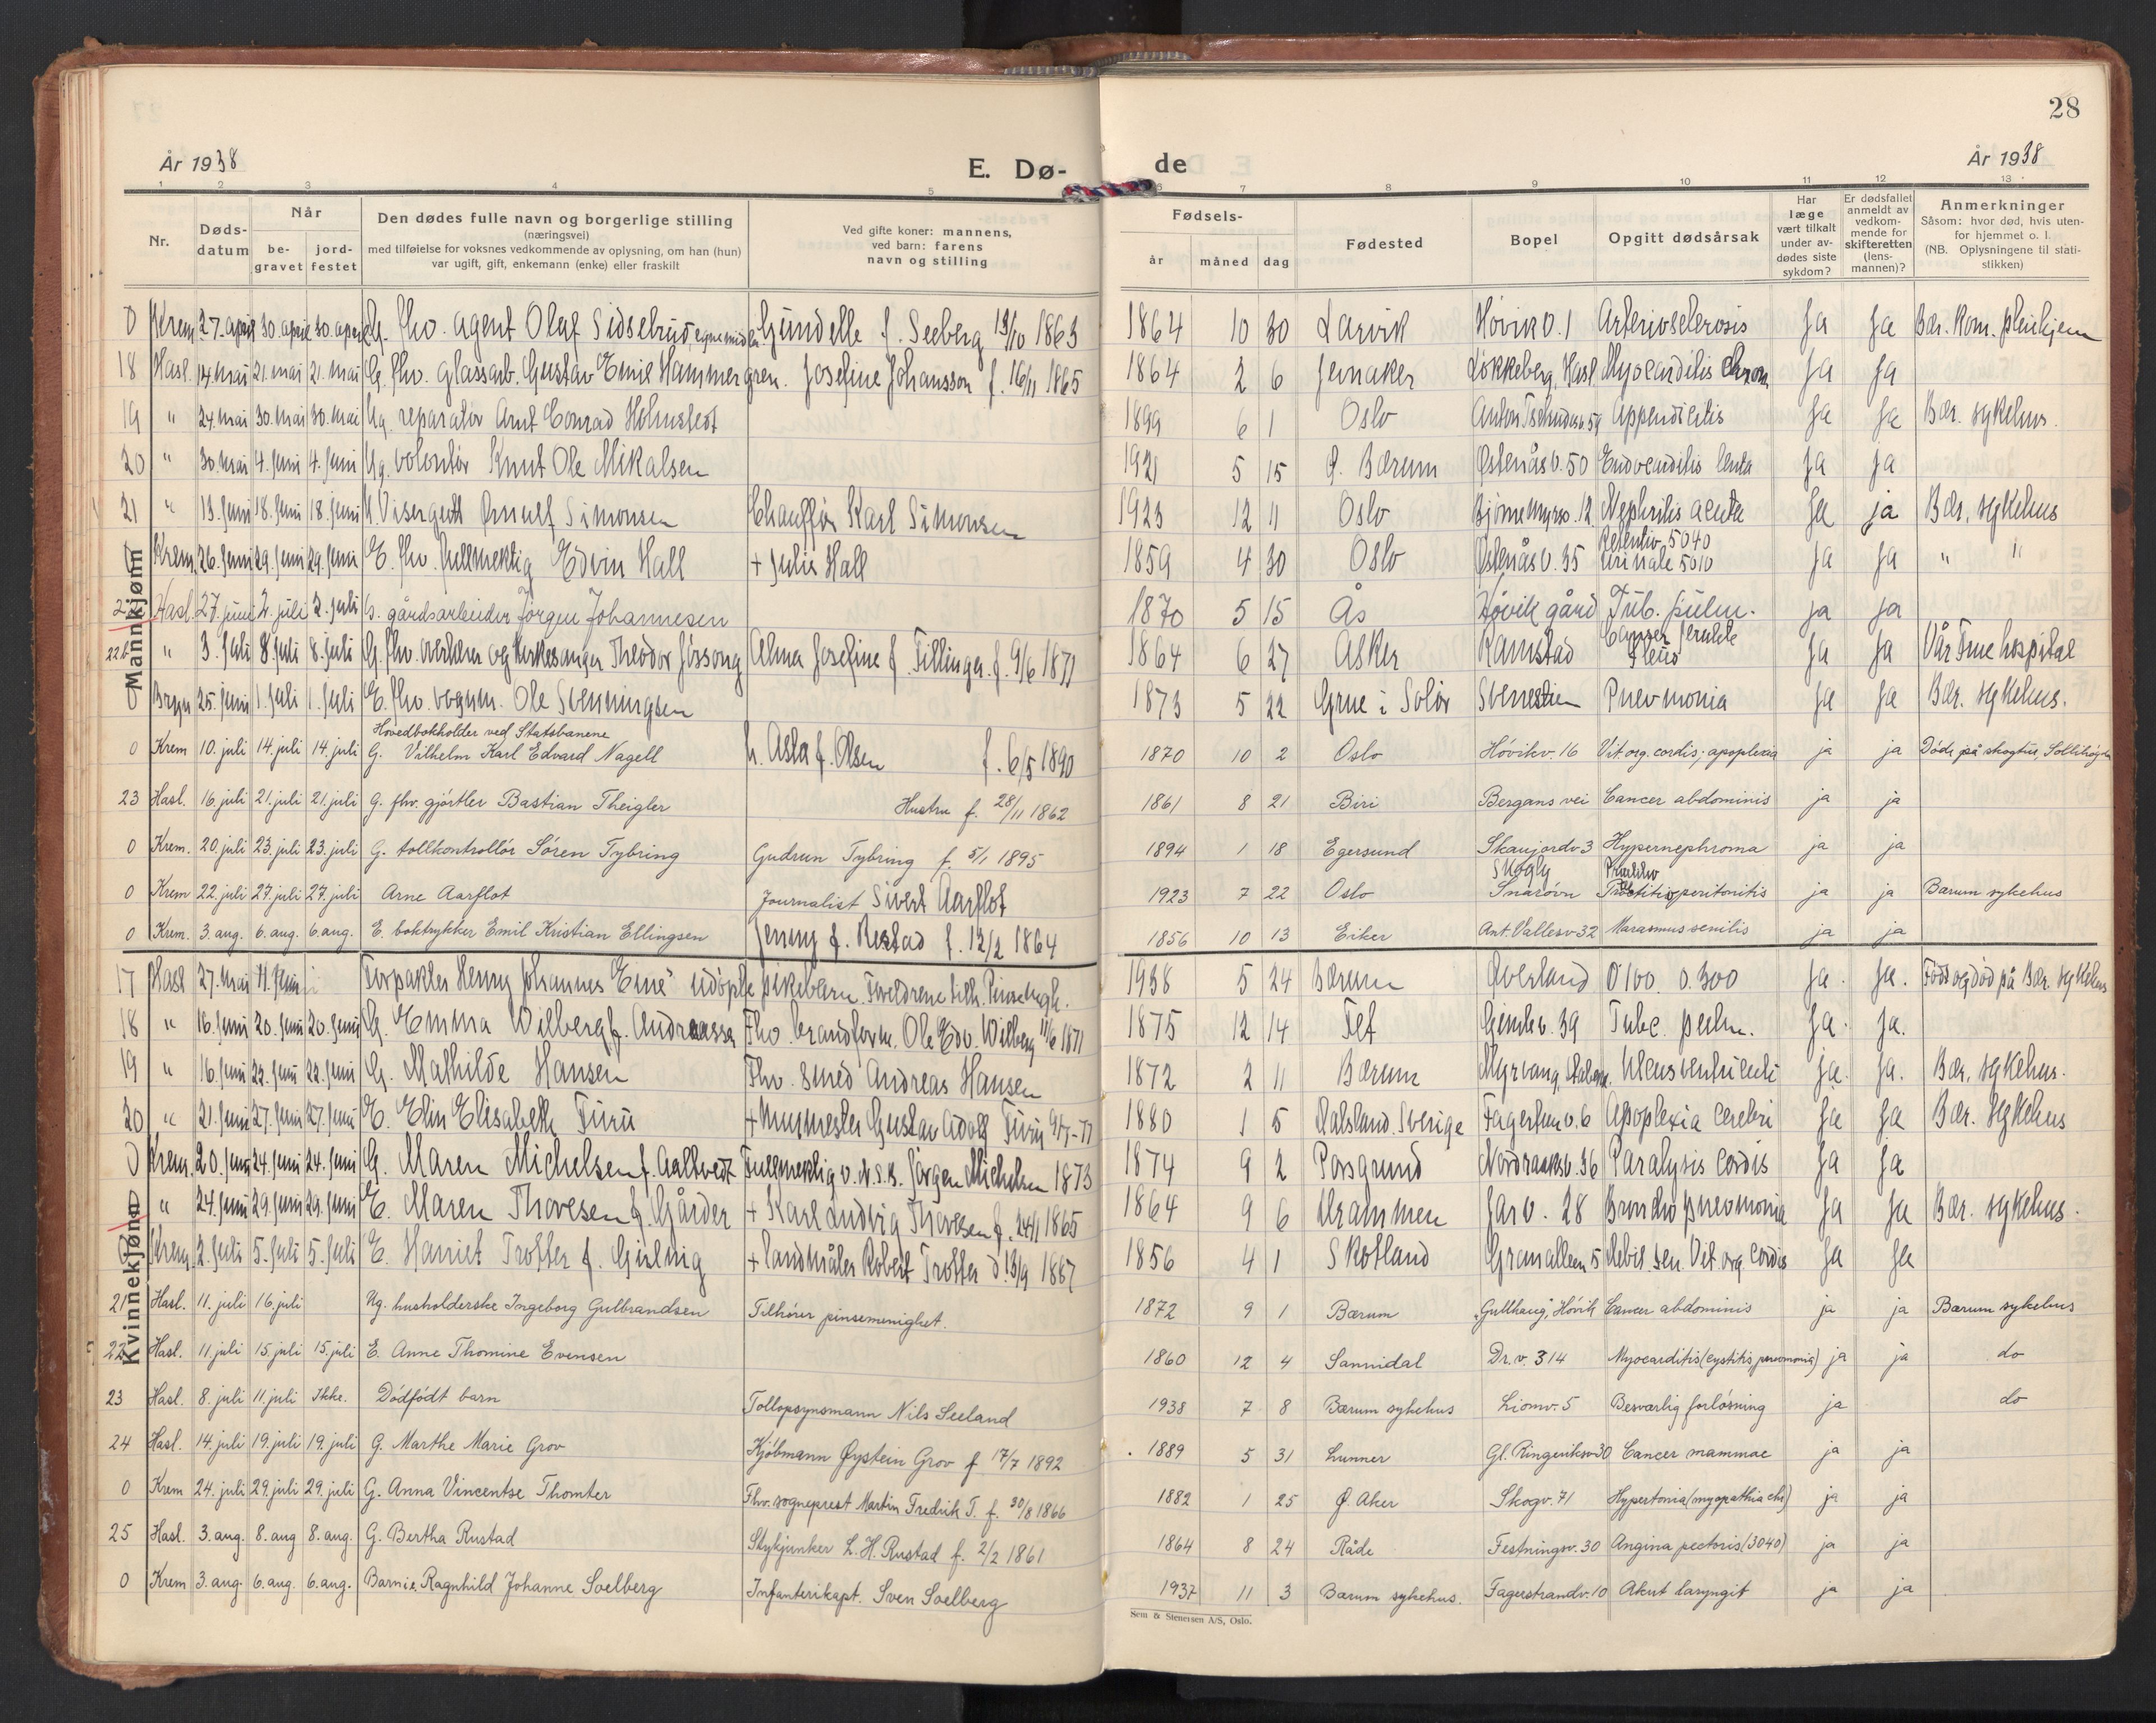 28
År 1938
E. Dø-
de
År 1938
1 2 3 4 5 6 7 8 9 10 11 12 13
Nr.
Døds-
datum
Når
be-
gravet
jord-
festet
Den dødes fulle navn og borgerlige stilling
(næringsvei)
med tilføielse for voksnes vedkommende av oplysning, om han (hun)
var ugift, gift, enkemann (enke) eller fraskilt
Ved gifte koner: mannens,
ved barn: farens
navn og stilling
Fødsels-
år måned dag
Fødested
Bopel
Opgitt dødsårsak
Har
læge
vært tilkalt
under av-
dødes siste
sykdom?
Er dødsfallet
anmeldt av
vedkom-
mende for
skifteretten
(lens-
mannen)?
Anmerkninger
Såsom: hvor død, hvis uten-
for hjemmet o. l.
(NB. Oplysningene til stati-
stikken)
Mannkjønn
0 Krem. 27. april 30. april 30. april G. fhv. agent Olaf Sidselrud, egne midler Gundelle f. Seeberg 13/10 1863 1864 10 30 Larvik Høvik v. 1 Arteriosclerosis Ja Ja Bær. kom. pleiehjem
18 Hasl. 14. mai 21. mai 21. mai G. fhv. glassarb. Gustav Emil Hammergren. Josefine Johansson f. 16/11 1865 1864 2 6 Jevnaker Løkkeberg, Hasl Myocarditis chron. Ja Ja
19 " 24. mai 30. mai 30. mai Ug. reparatør Arnt Conrad Holmstedt 1899 6 1 Oslo Anton Tschudisv. 54 Appendicitis Ja Ja Bær. sykehus.
20 " 30. mai 4. juni 4. juni Ug. volontør Knut Ole Mikalsen 1921 5 15 Ø. Bærum Østenås v. 50 Endocarditis lenta Ja Ja
21 " 13. juni 18. juni 18. juni U. Visergutt Arnulf Simonsen Chauffør Karl Simonsen 1923 12 11 Oslo Bjørnemyrv. 12 Nephritis acuta Ja ja Bær. sykehus
0 Krem. 26. juni 29. juni 29. juni E. fhv. fullmektig Edvin Hall + Julie Hall 1859 4 30 Oslo Østenås v. 35 Retentio 5040 urinale 5010 Ja Ja " "
22 Hasl. 27. juni 2. juli 2. juli G. gårdsarbeider Jörgen Johannesen 1870 5 15 Ås Høvik gård Tub. pulm. ja ja
22b " 3. juli 8. juli 8. juli G. fhv. overlærer og kirkesanger Theodor Jössong Alma Josefine f. Fillinger f. 9/6 1871 1864 6 27 Asker Ramstad Cancer Ja Ja Vår Frue hospital
0 Bryn 25. juni 1. juli 1. juli E. fhv. vognm. Ole Svenningsen 1873 5 22 Grue i Solør Svenestien Pnevmonia Ja Ja Bær. sykehus.
Hovedbokholder ved Statsbanene
0 Krem 10. juli 14. juli 14. juli G. Vilhelm Karl Edvard Nagell h. Asla f. Olsen f. 6/5 1890 1870 10 2 Oslo Høvikv. 16 Vit. org. cordis; apoplexia ja ja Døde på skogtur, Sollihögda
23 Hasl. 16. juli 21. juli 21. juli G. fhv. gjørtler Bastian Theigler Hustru f. 28/11 1862 1861 8 21 Biri Bergans vei Cancer abdominis ja ja
0 Krem. 20. juli 23. juli 23. juli G. tollkontrollör Sören Tybring Gudrun Tybring f. 5/1 1895 1894 1 18 Egersund Skaujordv 3 Hypernephroma ja ja
0 Krem 22. juli 27. juli 27. juli Arne Aarflot Journalist Sivert Aarflot 1923 7 22 Oslo Skogly Snarövn peritonitis ja ja Bærum sykehus
0 Krem. 3. aug. 6. aug. 6. aug. E. boktrykker Emil Kristian Ellingsen Jenny f. Restad f. 12/2 1864 1856 10 13 Eiker Ant. Vallesv 32 Marasmus senilis ja ja
Kvinnekjønn
17 Hasl 27. mai 11. juni Forpakter Henry Johannes Emil' udöpte pikebarn. Foreldrene tilh. Pinsemegh. 1938 5 24 Bærum Øverland 0100. 0.300 Ja. Ja. Född og död på Bær. sykehus
18 " 16. juni 20. juni 20. juni G. Emma Wilberg f. Andreassen Fhv. brandform. Ole Edv. Wilberg 11/6 1871 1875 12 14 Fet Gjemlev. 39 Tube. pulm. Ja. Ja.
19 " 16. juni 22. juni 22. juni G. Mathilde Hansen Fhv. smed Andreas Hansen 1872 2 11 Bærum Myrvang, Stabekk. Ulcus ventriculi ja. Ja. Bær. sykehus.
20 " 21. juni 27. juni 27. juni E. Elin Elisabeth Furu + Murmester Gustav Adolf Furu 9/7-77 1880 1 5 Dalsland. Sverige Fagertun v. 6 Apoplexia cerebri Ja Ja Bær. Sykehus
0 Krem. 20. juni 24. juni 24. juni G. Maren Michelsen f. Aaltvedt Fullmektig v. N.S.B. Jörgen Michelsen 1873 1874 9 2 Porsgrund Nordraaksv. 36 Paralysis cordis Ja Ja
0 " 24. juni 29. juni 29. juni E. Maren Thoresen f. Gårder + Karl Ludvig Thoresen f. 24/1 1865 1864 9 6 Drammen Jar v. 28 Broncho pnevmonia Ja Ja Bær. sykehus.
Krem. 2. juli 5. juli 5. juli E. Harriet Trotter f. + landmåler Robert Trotter d. 13/9 1887 1856 4 1 Skotland Granalleen 5 Debil. sen. Vit. org. cordis Ja Ja
21 Hasl. 11. juli 16. juli Ug. husholderske Ingeborg Gulbrandsen Tilhører pinsemenighet. 1872 9 1 Bærum "Gullhaug", Hövik Cancer abdominis ja ja Bærum sykehus
22 Hasl. 11. juli 15. juli 15. juli E. Anne Thomine Evensen 1860 12 4 Sannidal Dr. v. 314 Myocarditis (cystitis, pneumonia) ja ja do
23 Hasl. 8. juli 11. juli Ikke. Dödfödt barn Tollopsynsmann Nils Seeland 1938 7 8 Bærum sykehus Lionv. 5 Besværlig forlösning ja do
24 Hasl. 14. juli 19. juli 19. juli G. Marthe Marie Grov Kjöbmann Øystein Grov f 17/7 1892 1889 5 31 Lunner Gl. Ringeriksv 30 Cancer mammae ja ja
0 Krem 24. juli 29. juli 29. juli G. Anna Vincentse Thomter Fhv. sogneprest Martin Fredrik T. f. 30/8 1866 1882 1 25 Ø. Aker Skogv. 71 Hypertonia (myopathia chr) ja ja
25 Hasl. 3. aug. 8. aug 8. aug. G. Bertha Rustad Stykjunker L. H. Rustad f. 2/2 1861 1864 8 24 Råde Festningsv. 30 Angina pectoris (3040) ja ja
0 Krem 3. aug. 6. aug. 6. aug. Barnie. Ragnhild Johanne Soelberg Infanterikapt. Sven Soelberg 1937 11 3 Bærum sykehus. Fagerstrandv. 10 Akut laryngit ja ja
Sem & Stenersen A/S, Oslo.